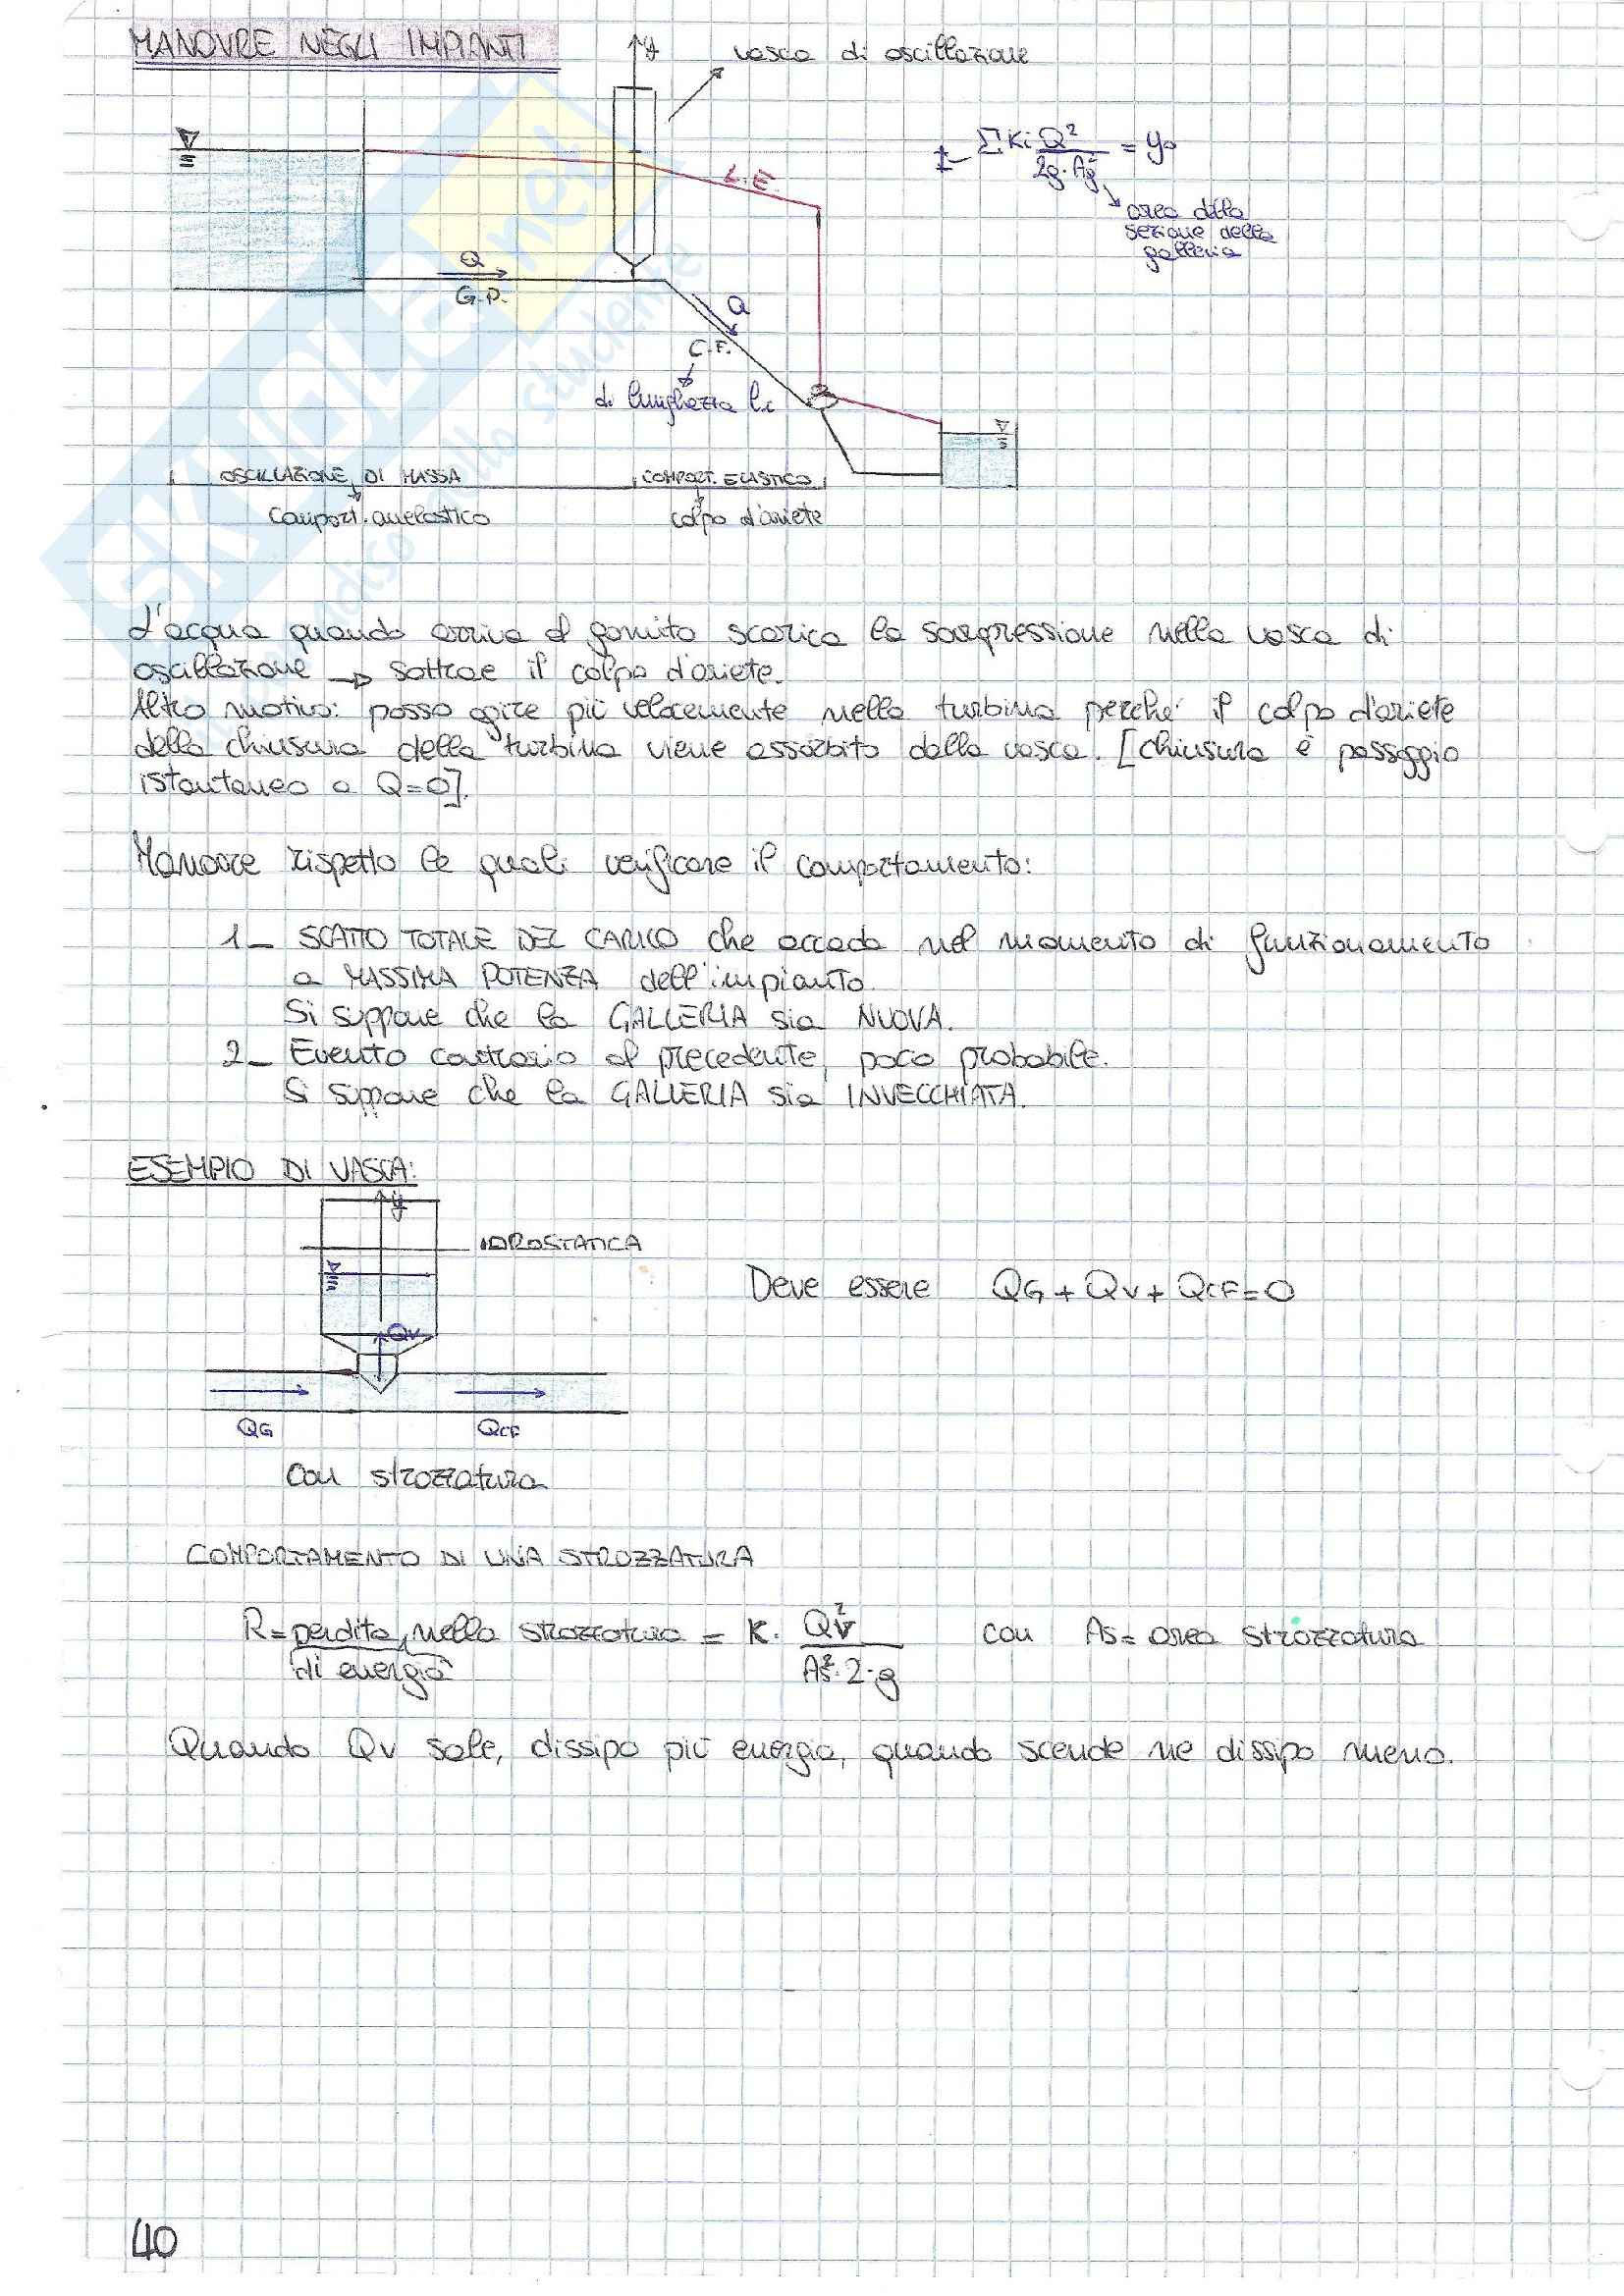 MANOVRE NEGLI IMPIANTI
y
vasca di oscillazione
Σ Ki Q² / 2g·Ag² = y₀
area della
sezione della
galleria
L.E.
Q
G.P.
Q
C.F.
di lunghezza Lc
OSCILLAZIONE DI MASSA
COMPORT. ELASTICO
comport. anelastico
colpo d'ariete
L'acqua quando arriva al gomito scarica la sovrapressione nella vasca di
oscillazione → sottrae il colpo d'ariete.
Altro motivo: posso agire più velocemente nella turbina perché il colpo d'ariete
della chiusura della turbina viene assorbito dalla vasca. [chiusura è passaggio
istantaneo a Q=0].
Manovre rispetto le quali verificare il comportamento:
1_ SCATTO TOTALE DEL CARICO che accada nel momento di funzionamento
a MASSIMA POTENZA dell'impianto.
Si suppone che la GALLERIA sia NUOVA.
2_ Evento contrario al precedente, poco probabile.
Si suppone che la GALLERIA sia INVECCHIATA.
ESEMPIO DI VASCA:
y
IDROSTATICA
Qv
Deve essere QG + QV + QCF = 0
QG
QCF
con strozzatura
COMPORTAMENTO DI UNA STROZZATURA
R = perdita di energia nella strozzatura = K · Qv² / As²·2·g con As = area strozzatura
Quando Qv sale, dissipo più energia, quando scende ne dissipo meno.
40